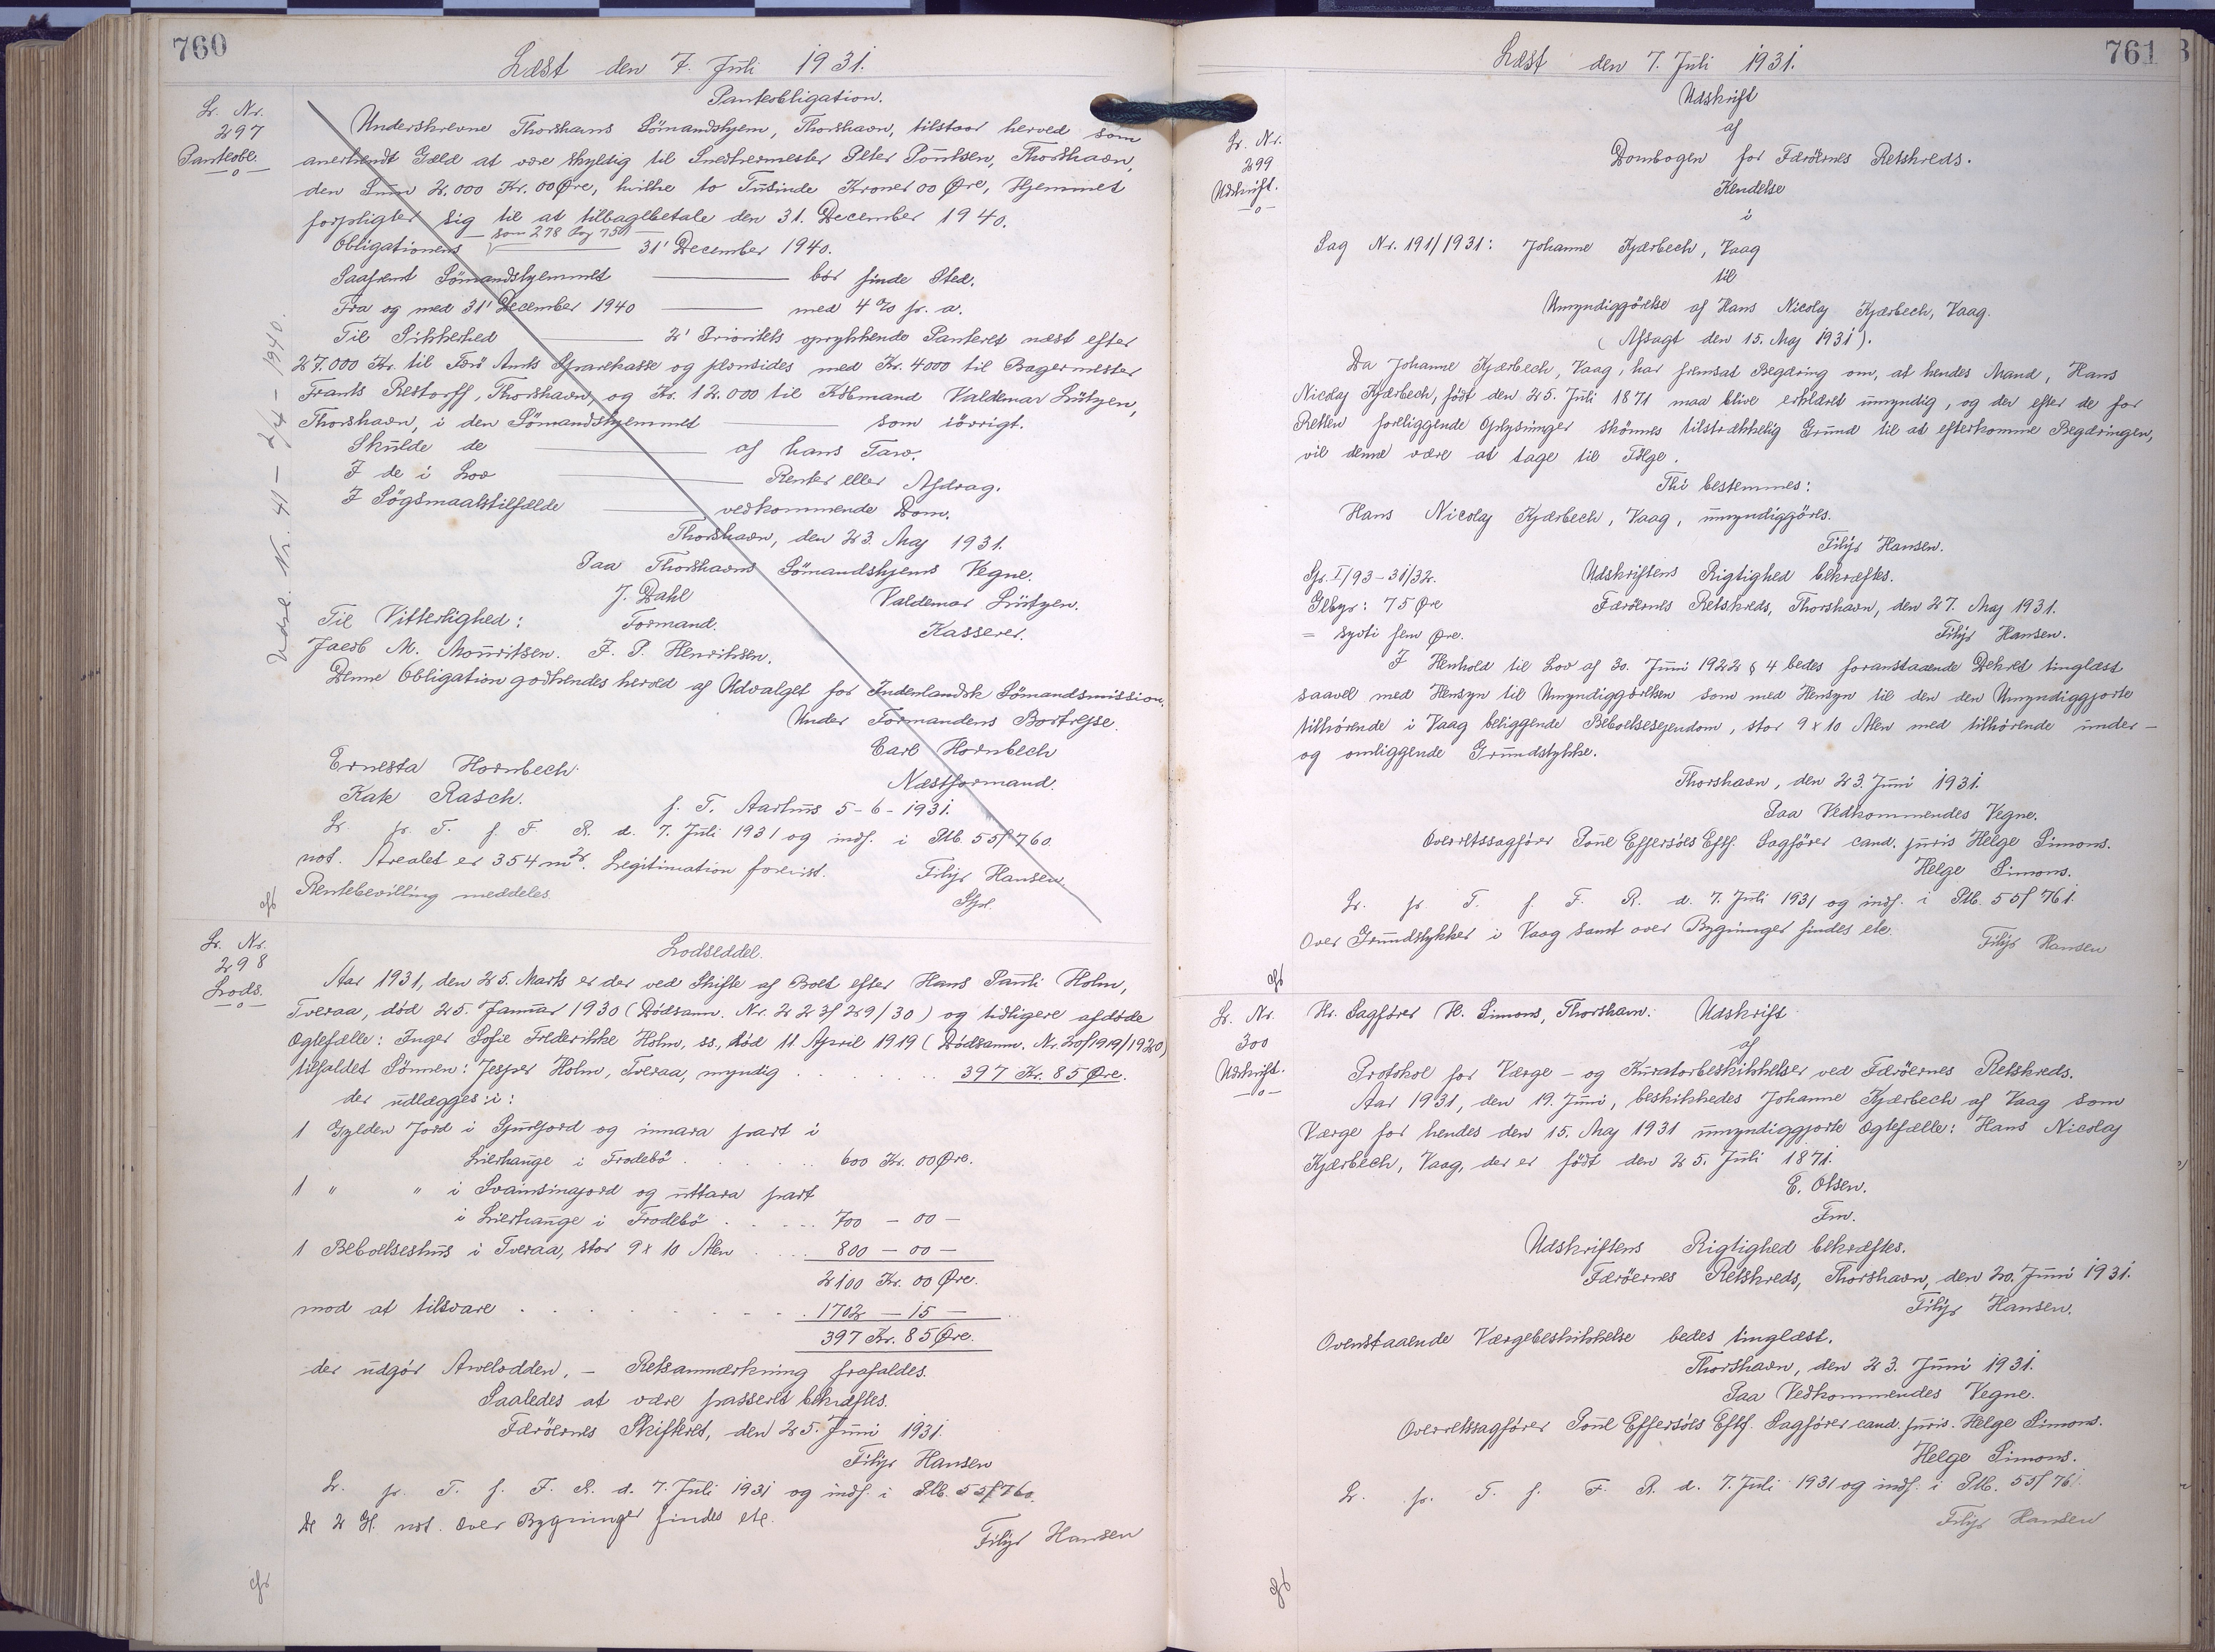 760
Læst den 7. Juli 1931.
Lr. Nr.
297
Panteobl.
Panteobligation.
Underskrevne Thorshavns Sömandshjem, Thorshavn, tilstaar herved som
anerkendt Gæld at være skyldig til Snedkermester Peter Poulsen, Thorshavn,
den Sum 2.000 Kr. 00 Øre, hvilke to Tusinde Kroner 00 Øre, Hjemmet
forpligter sig til at tilbagebetale den 31. December 1940.
Obligationens som 278 Pag 750 31' December 1940.
Saafremt Sömandshjemmet — bör finde Sted.
Fra og med 31' December 1940 — med 4 % p. a.
Til Sikkerhed — 2' Prioritets oprykkende Panteret næst efter
27.000 Kr. til Færö Amts Sparekasse og jevnsides med Kr. 4000 til Bagermester
Frants Restorff, Thorshavn, og Kr. 12.000 til Köbmand Valdemar Lützen,
Thorshavn, i den Sömandshjemmet — som iövrigt.
Skulde de — af hans Tarv.
I de i Lov — Renter eller Afdrag.
I Sögsmaalstilfælde — vedkommende Dom.
Thorshavn, den 23. Maj 1931.
Paa Thorshavns Sömandshjems Vegne.
J. Dahl Valdemar Lützen.
Til Vitterlighed: Formand. Kasserer.
Jacob M. Mouritsen. J. P. Henriksen.
Denne Obligation godkendes herved af Udvalget for Indenlandsk Sömandsmission.
Under Formandens Bortrejse.
Carl Hornbech
Ernesta Hornbech. Næstformand.
Kate Rasch. p. T. Aarhus 5-6-1931.
Lr. p. T. f. F. R. d. 7. Juli 1931 og indf. i Ptb. 55f 760
not. Arealet er 354 m2. Legitimation forevist. Filip Hansen
Rentebevilling meddeles. Spl.
Udsl. Nr. 41 — 2/4 — 1940.
Lr. Nr.
298
Lods.
Lodseddel.
Aar 1931, den 25. Marts er der ved Skifte af Boet efter Hans Pauli Holm,
Tveraa, död 25. Januar 1930 (Dödsanm. Nr. 223f 29/30) og tidligere afdöde
Ægtefælle: Inger Sofie Frederikke Holm, ss., död 11. April 1919 (Dödsanm. Nr. 20f1919/1920)
tilfaldet Sönnen: Jesper Holm, Tveraa, myndig . . . 397 Kr. 85 Øre.
der udlægges i:
1 Gylden Jord i Spurjord og innara part i
Lierhauge i Frodebö . . . 600 Kr. 00 Øre.
1 " " i Svainsinajord og uttara part
i Lierhauge i Frodebö . . . 700 — 00 —
1 Beboelseshus i Tveraa, stor 9 x 10 Alen . . . 800 — 00 —
2100 Kr. 00 Øre.
mod at tilsvare . . . 1702 — 15 —
397 Kr. 85 Øre.
der udgör Arvelodden. — Retsanmærkning frafaldes.
Saaledes at være passeret bekræftes.
Færöernes Skifteret, den 25. Juni 1931.
Filip Hansen
Lr. p. T. f. F. R. d. 7. Juli 1931 og indf. i Ptb. 55f 760.
De 2 Gl. not. Over Bygninger findes ete.
Filip Hansen
761
Læst den 7. Juli 1931.
Lr. Nr.
299
Udskrift.
Udskrift
af
Dombogen for Færöernes Retskreds.
Kendelse
i
Sag Nr. 191/1931: Johanne Kjærbech, Vaag
til
Umyndiggörelse af Hans Nicolaj Kjærbech, Vaag.
(Afsagt den 15. Maj 1931).
Da Johanne Kjærbech, Vaag, har fremsat Begæring om, at hendes Mand, Hans
Nicolaj Kjærbech, födt den 25. Juli 1871 maa blive erklæret umyndig, og der efter de for
Retten foreliggende Oplysninger skönnes tilstrækkelig Grund til at efterkomme Begæringen,
vil denne være at tage til Fölge.
Thi bestemmes:
Hans Nicolaj Kjærbech, Vaag, umyndiggöres.
Filip Hansen.
Sp. I/93-31/32. Udskriftens Rigtighed bekræftes.
Gebyr: 75 Øre Færöernes Retskreds, Thorshavn, den 27. Maj 1931.
= syvti fem Øre. Filip Hansen.
I Henhold til Lov af 30. Juni 1922 § 4 bedes foranstaaende Dekret tinglæst
saavel med Hensyn til Umyndiggörelsen som med Hensyn til den den Umyndiggjorte
tilhörende i Vaag beliggende Beboelsesejendom, stor 9 x 10 Alen med tilhörende under-
og omliggende Grundstykke.
Thorshavn, den 23. Juni 1931.
Paa Vedkommendes Vegne.
Overretssagförer Poul Effersöes Eftf. Sagförer cand. juris Helge Simons.
Helge Simons.
Lr. p. T. f. F. R. d. 7. Juli 1931 og indf. i Ptb. 55f 761.
Over Grundstykker i Vaag samt over Bygninger findes ete. Filip Hansen
Lr. Nr.
300
Udskrift.
Hr. Sagförer H. Simons, Thorshavn. Udskrift
af
Protokol for Værge- og Kuratorbeskikkelser ved Færöernes Retskreds.
Aar 1931, den 19. Juni, beskikkedes Johanne Kjærbech af Vaag som
Værge for hendes den 15. Maj 1931 umyndiggjorte Ægtefælle: Hans Nicolaj
Kjærbech, Vaag, der er födt den 25. Juli 1871.
E. Olsen.
Fm.
Udskriftens Rigtighed bekræftes.
Færöernes Retskreds, Thorshavn, den 20. Juni 1931.
Filip Hansen.
Ovenstaaende Værgebeskikkelse bedes tinglæst.
Thorshavn, den 23. Juni 1931.
Paa Vedkommendes Vegne.
Overretssagförer Poul Effersöes Eftf. Sagförer cand. juris. Helge Simons.
Helge Simons.
Lr. p. T. f. F. R. d. 7. Juli 1931 og indf. i Ptb. 55f 761.
Filip Hansen